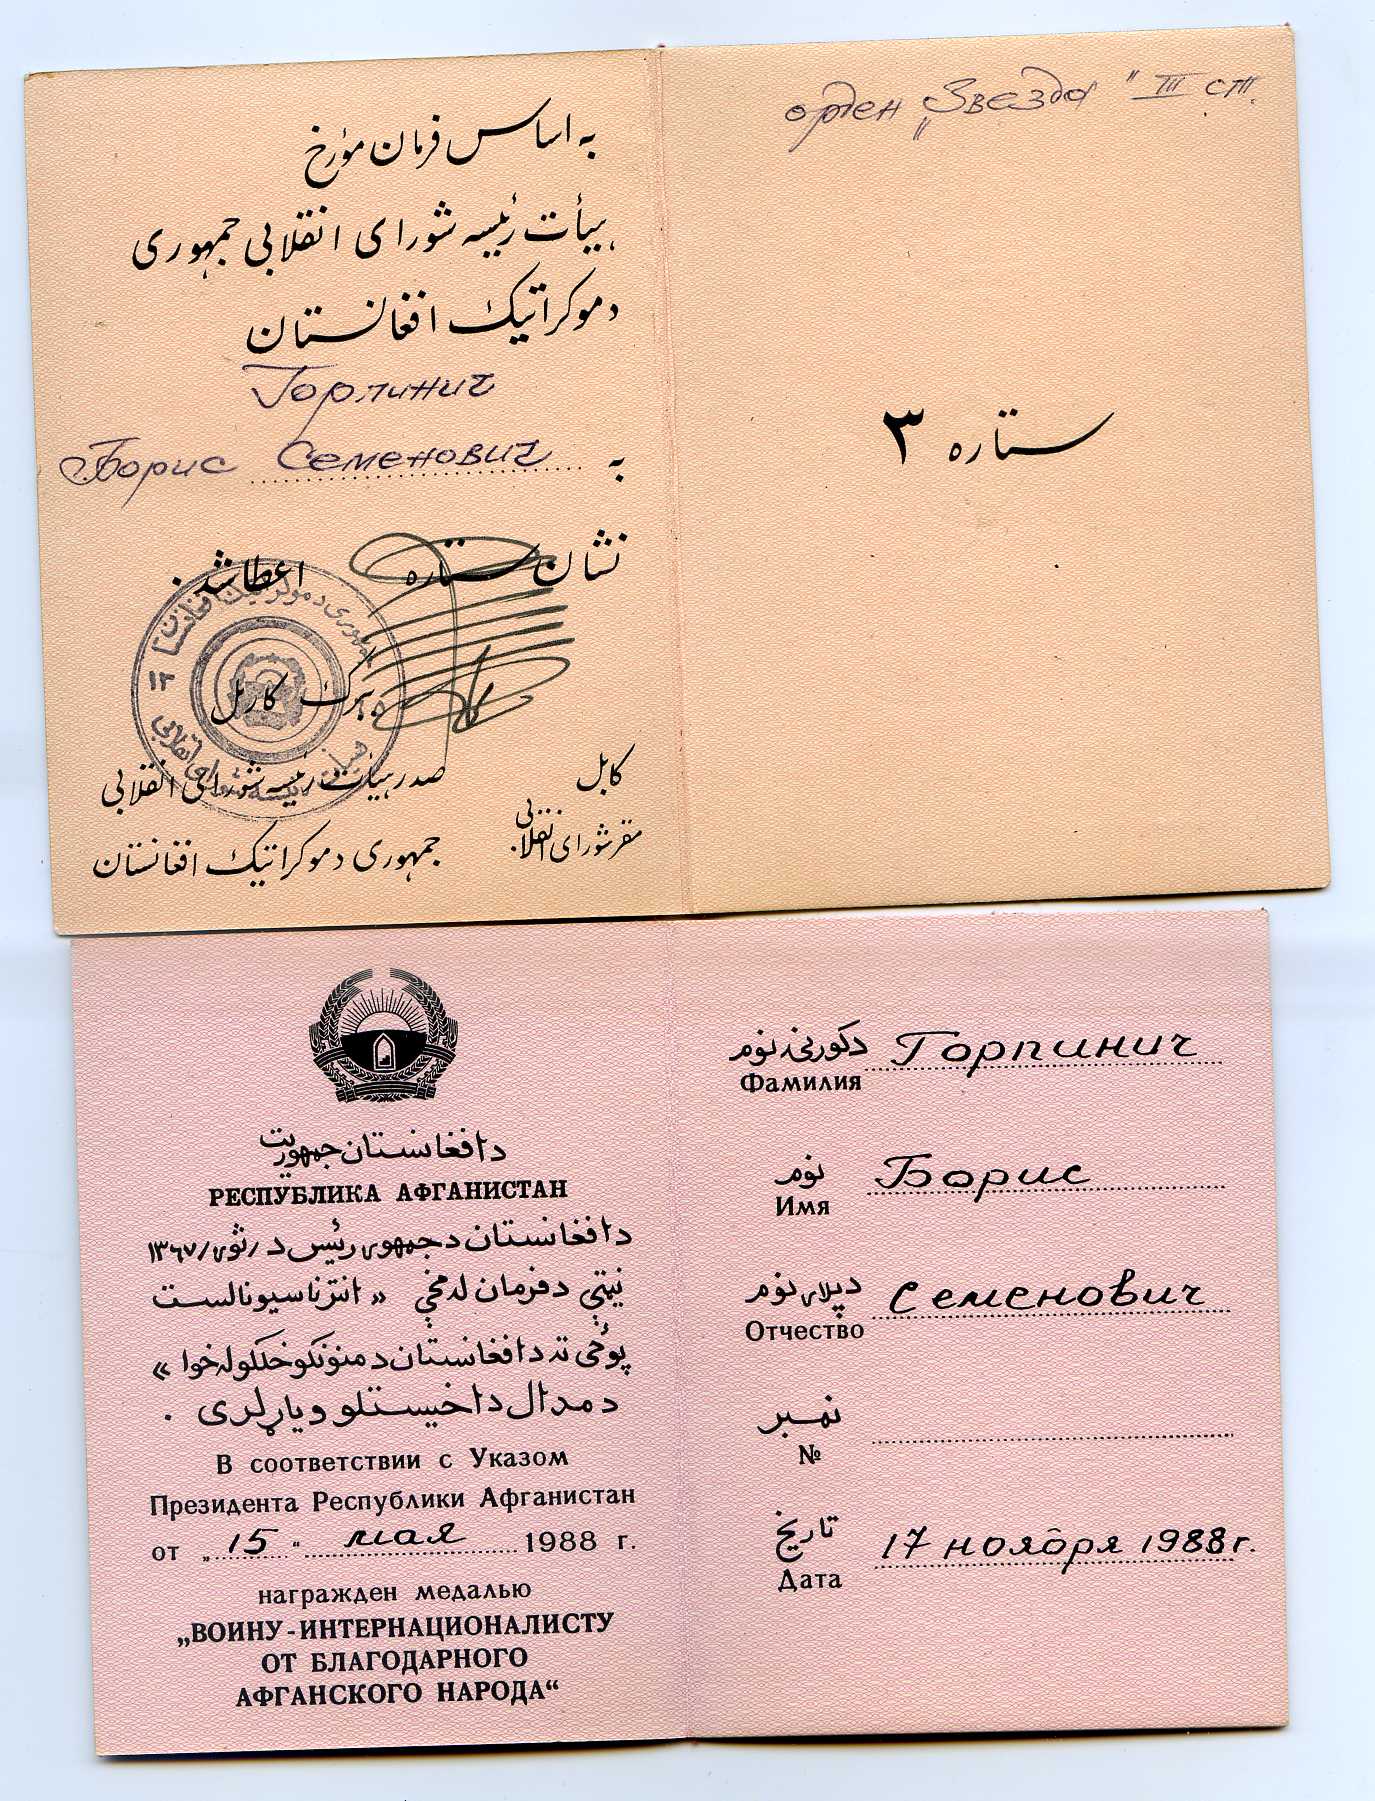 به اساس فرمان مؤرخ
هیأت رئیسه شورای انقلابی جمهوری
دموکراتیک افغانستان
Горпинич
به Борис Семенович
نشان ستاره اعطا شد.
ببرک کارمل
صدر هیأت رئیسه شورای انقلابی
جمهوری دموکراتیک افغانستان
کابل
مقر شورای انقلابی.
орден „Звезда" III ст.
ستاره ۳
د افغانستان جمهوریت
РЕСПУБЛИКА АФГАНИСТАН
د افغانستان د جمهور رئیس د /ثور/ ۱۳۶۷
نیټې د فرمان له مخې « انترناسیونالست
پوځي ته د افغانستان د منونکو خلکو له خوا »
د مدال د اخیستلو ویاړ لري .
В соответствии с Указом
Президента Республики Афганистан
от „15" мая 1988 г.
награжден медалью
„ВОИНУ-ИНТЕРНАЦИОНАЛИСТУ
ОТ БЛАГОДАРНОГО
АФГАНСКОГО НАРОДА“
د کورنۍ نوم Горпинич
Фамилия
نوم Борис
Имя
د پلار نوم Семенович
Отчество
نمبر
№
تاریخ 17 ноября 1988 г.
Дата